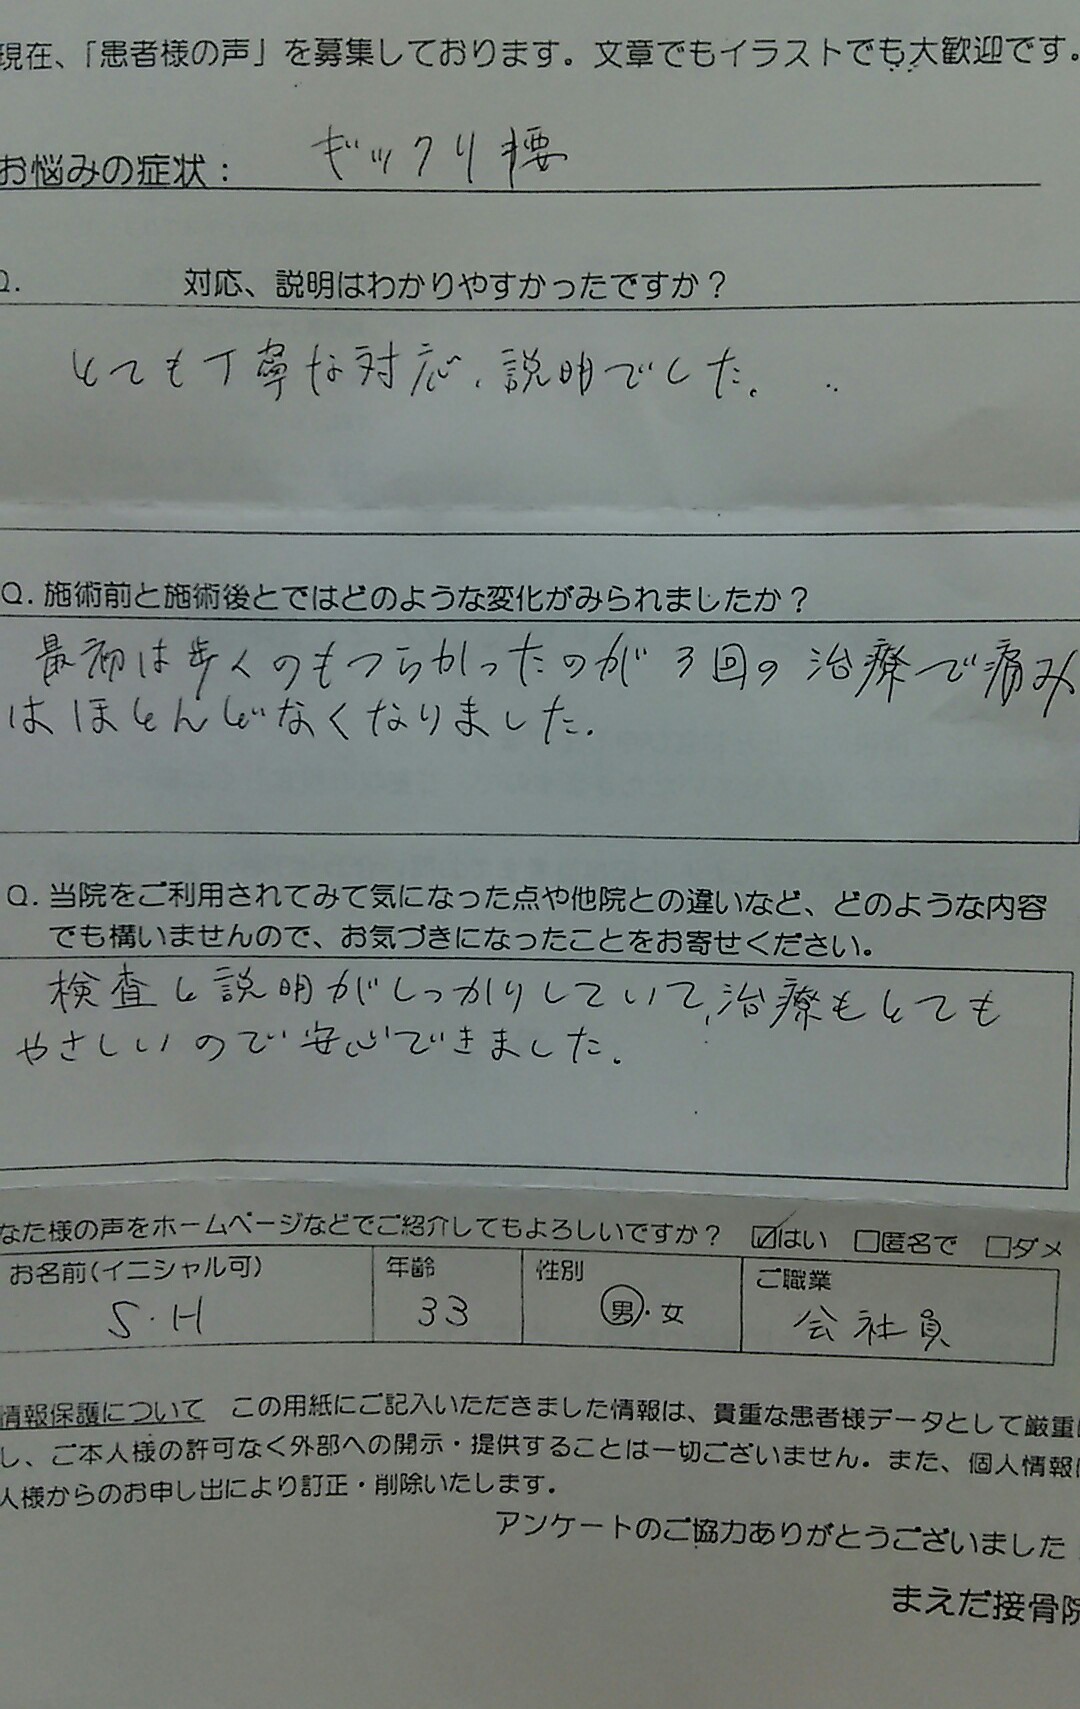 現在、「患者様の声」を募集しております。文章でもイラストでも大歓迎です。
お悩みの症状： ギックリ腰
Q. 対応、説明はわかりやすかったですか？
とても丁寧な対応、説明でした。
Q. 施術前と施術後とではどのような変化がみられましたか？
最初は歩くのもつらかったのが3回の治療で痛み
はほとんどなくなりました。
Q. 当院をご利用されてみて気になった点や他院との違いなど、どのような内容
でも構いませんので、お気づきになったことをお寄せください。
検査と説明がしっかりしていて、治療もとても
やさしいので安心できました。
なた様の声をホームページなどでご紹介してもよろしいですか？ ☑はい □匿名で □ダメ
お名前(イニシャル可) 年齢 性別 ご職業
S・H 33 男・女 会社員
情報保護について この用紙にご記入いただきました情報は、貴重な患者様データとして厳重に
し、ご本人様の許可なく外部への開示・提供することは一切ございません。また、個人情報は
人様からのお申し出により訂正・削除いたします。
アンケートのご協力ありがとうございました
まえだ接骨院